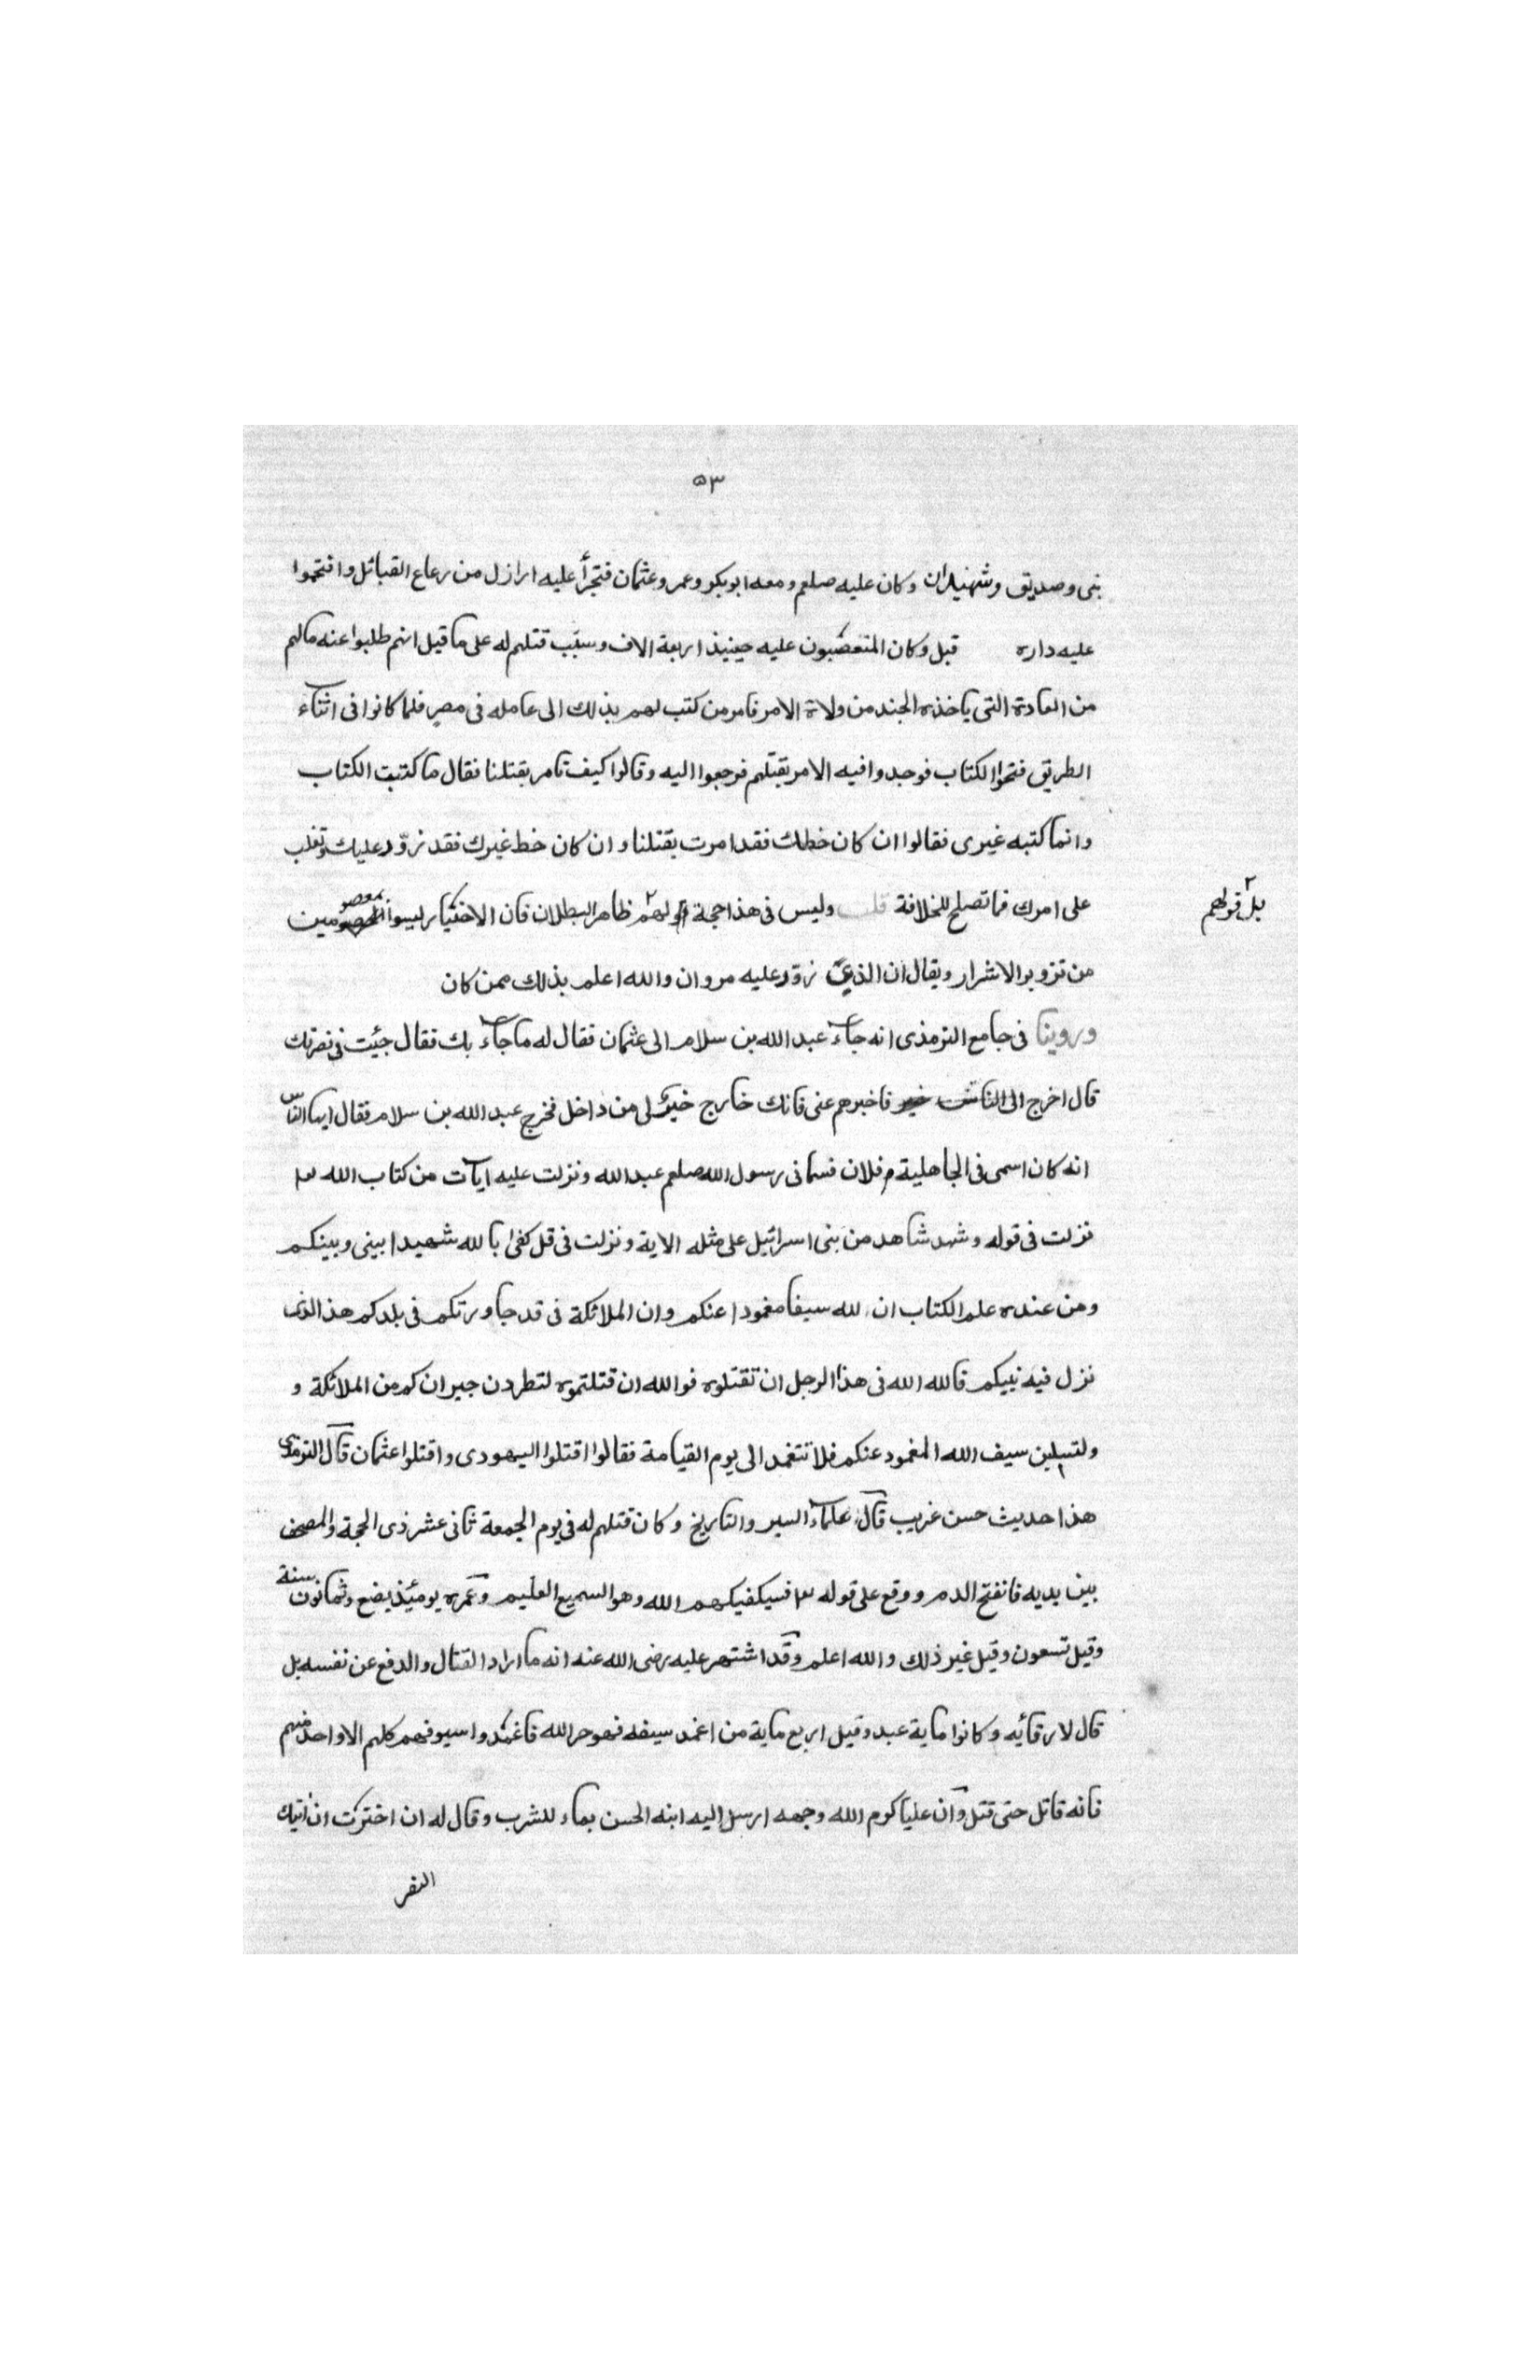 ٥٣
نبى وصديق وشهيدان وكان عليه صلعم ومعه ابوبكر وعمر وعثمان فتجرأ عليه اراذل من رعاع القبائل واقتحموا
عليه داره قيل وكان المتعصبون عليه حينيذ اربعة الاف وسبب قتلهم له على ما قيل انهم طلبوا عنه مالهم
من العادة التى ياخذه الجند من ولاة الامر فامر من كتب لهم بذلك الى عامله فى مصر فلما كانوا فى اثناء
الطريق فتحوا الكتاب فوجدوا فيه الامر بقتلهم فرجعوا اليه وقالوا كيف تامر بقتلنا فقال ما كتبت الكتاب
وانما كتبه غيرى فقالوا ان كان خطك فقد امرت بقتلنا وان كان خط غيرك فقد زوّر عليك وتغلب
على امرك فما تصلح للخلافة قلت وليس فى هذا حجة لهم ظاهر البطلان فان الاختيار ليسوا بمعصومين
بل قولهم
من تزوير الاشرار ويقال ان الذى زوّر عليه مروان والله اعلم بذلك ممن كان
وروينا فى جامع الترمذى انه جاء عبد الله بن سلام الى عثمان فقال له ما جاء بك فقال جيئت فى نصرتك
قال اخرج الى الناس فاخبرهم عنى فانك خارج خير لى من داخل فخرج عبد الله بن سلام فقال ايها الناس
انه كان اسمى فى الجاهلية فلان فسمانى رسول الله صلعم عبد الله ونزلت عليه ايات من كتاب الله
نزلت فى قوله وشهد شاهد من بنى اسرائيل على مثله الاية ونزلت فى قل كفى بالله شهيدا بينى وبينكم
ومن عنده علم الكتاب ان لله سيفا مغمودا عنكم وان الملائكة فى قد جاورتكم فى بلدكم هذ الذى
نزل فيه نبيكم فالله الله فى هذا الرجل ان تقتلوه فوالله ان قتلتموه لتطردن جيرانكم من الملائكة و
ولتسلين سيف الله المغمود عنكم فلا تتغمد الى يوم القيامة فقالوا اقتلوا اليهودى واقتلوا عثمان قال الترمذى
هذا حديث حسن غريب قال علماء السير والتاريخ وكان قتلهم له فى يوم الجمعة ثانى عشر ذى الحجة والمصحف
بين يديه فانفتح الدم ووقع على قوله فسيكفيكهم الله وهو السميع العليم وعمره يومئيذ بضع وثمانون سنة
وقيل تسعون وقيل غير ذلك والله اعلم وقد اشتهر عليه رضى الله عنه انه ما اراد القتال والدفع عن نفسه بل
قال لارقائه وكانوا ماية عبد وقيل اربع ماية من اغمد سيفه فهو حر الله فاغمدوا سيوفهم كلهم الا واحد منهم
فانه قاتل حتى قتل وان عليا كرم الله وجهه ارسل اليه ابنه الحسن بماء للشرب وقال له ان اخترت ان اتيك
النفر